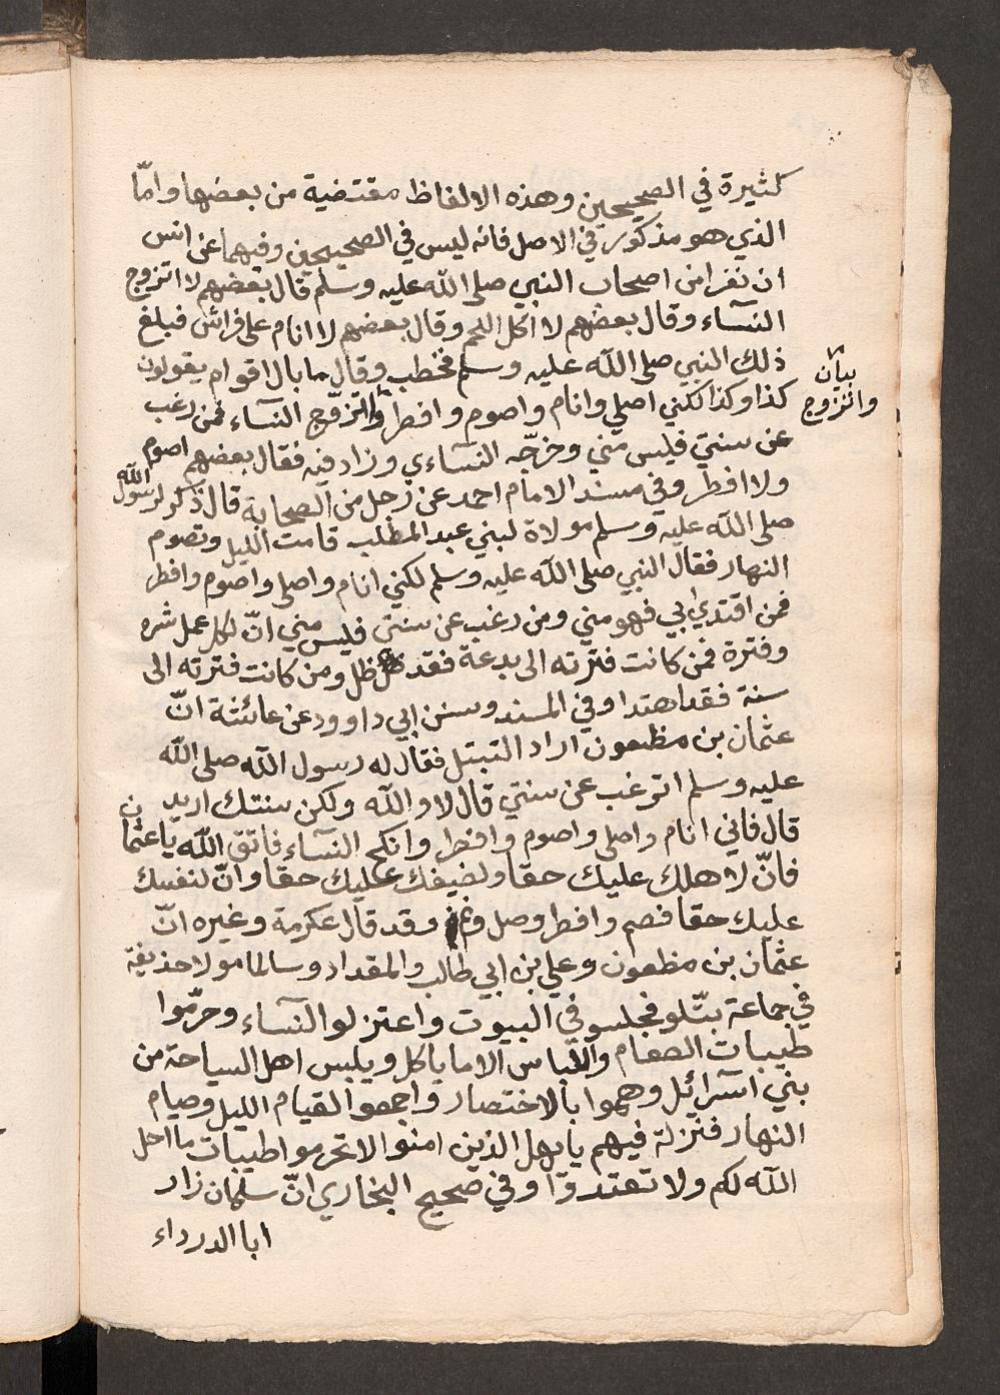 كثيرة في الصحيحين وهذه الالفاظ مقتضية من بعضها وامّا
الذي هو مذكور في الاصل فانه ليس في الصحيحين وفيهما عن انس
ان نفرا من اصحاب النبي صلى الله عليه وسلم قال بعضهم لا اتزوج
النسآء وقال بعضهم لا آكل اللحم وقال بعضهم لا انام على فراش فبلغ
ذلك النبي صلى الله عليه وسلم فخطب وقال ما بال اقوام يقولون
كذا وكذا لكني اصلي وانام واصوم وافطر واتزوّج النسآء فمن رغب
بيان
واتزوج
عن سنتي فليس مني وخرّجه النسآءي وزاد فيه فقال بعضهم اصوم
ولا افطر وفي مسند الامام احمد عن رجل من الصحابة قال ذكر لرسول الله
صلى الله عليه وسلم مولاة لبني عبد المطلب قامت الليل وتصوم
النهار فقال النبي صلى الله عليه وسلم لكني انام واصلي واصوم وافطر
فمن اقتدي بي فهو مني ومن رغب عن سنتي فليس مني انّ لكل عمل شره
وفترة فمن كانت فترته الى بدعة فقد ظل ومن كانت فترته الى
سنة فقد اهتدا وفي المسند وسنن ابي داوود عن عائشة انّ
عثمان بن مظعون اراد التبتل فقال له رسول الله صلى الله
عليه وسلم اترغب عن سنتي قال لا والله ولكن سنتك اريد
قال فاني انام واصلي واصوم وافطر وانكح النسآء فاتق الله يا عثمان
فانّ لاهلك عليك حقا ولضيفك عليك حقا وانّ لنفسك
عليك حقا فصم وافطر وصل ونم وقد قال عكرمة وغيره انّ
عثمان بن مظعون وعلي بن ابي طالب والمقداد وسالما مولا حذيفة
في جماعة بتّلو فجلسو في البيوت واعتزلو النسآء وحرّموا
طيبات الطعام واللباس الا ما ياكل ويلبس اهل السياحة من
بني اسرآئل وهموا بالاختصار واجمعو القيام الليل وصيام
النهار فنزلة فيهم يايهل الذين امنو الا تحرمو اطيبات ما احل
الله لكم ولا تعتدوّا وفي صحيح البخاري انّ سلمان زار
ابا الدرداء